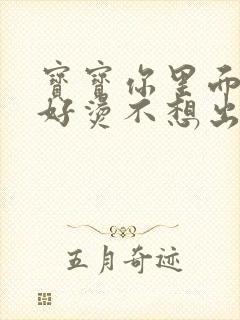 寶寶你里而
好燙不想出
五月奇迹